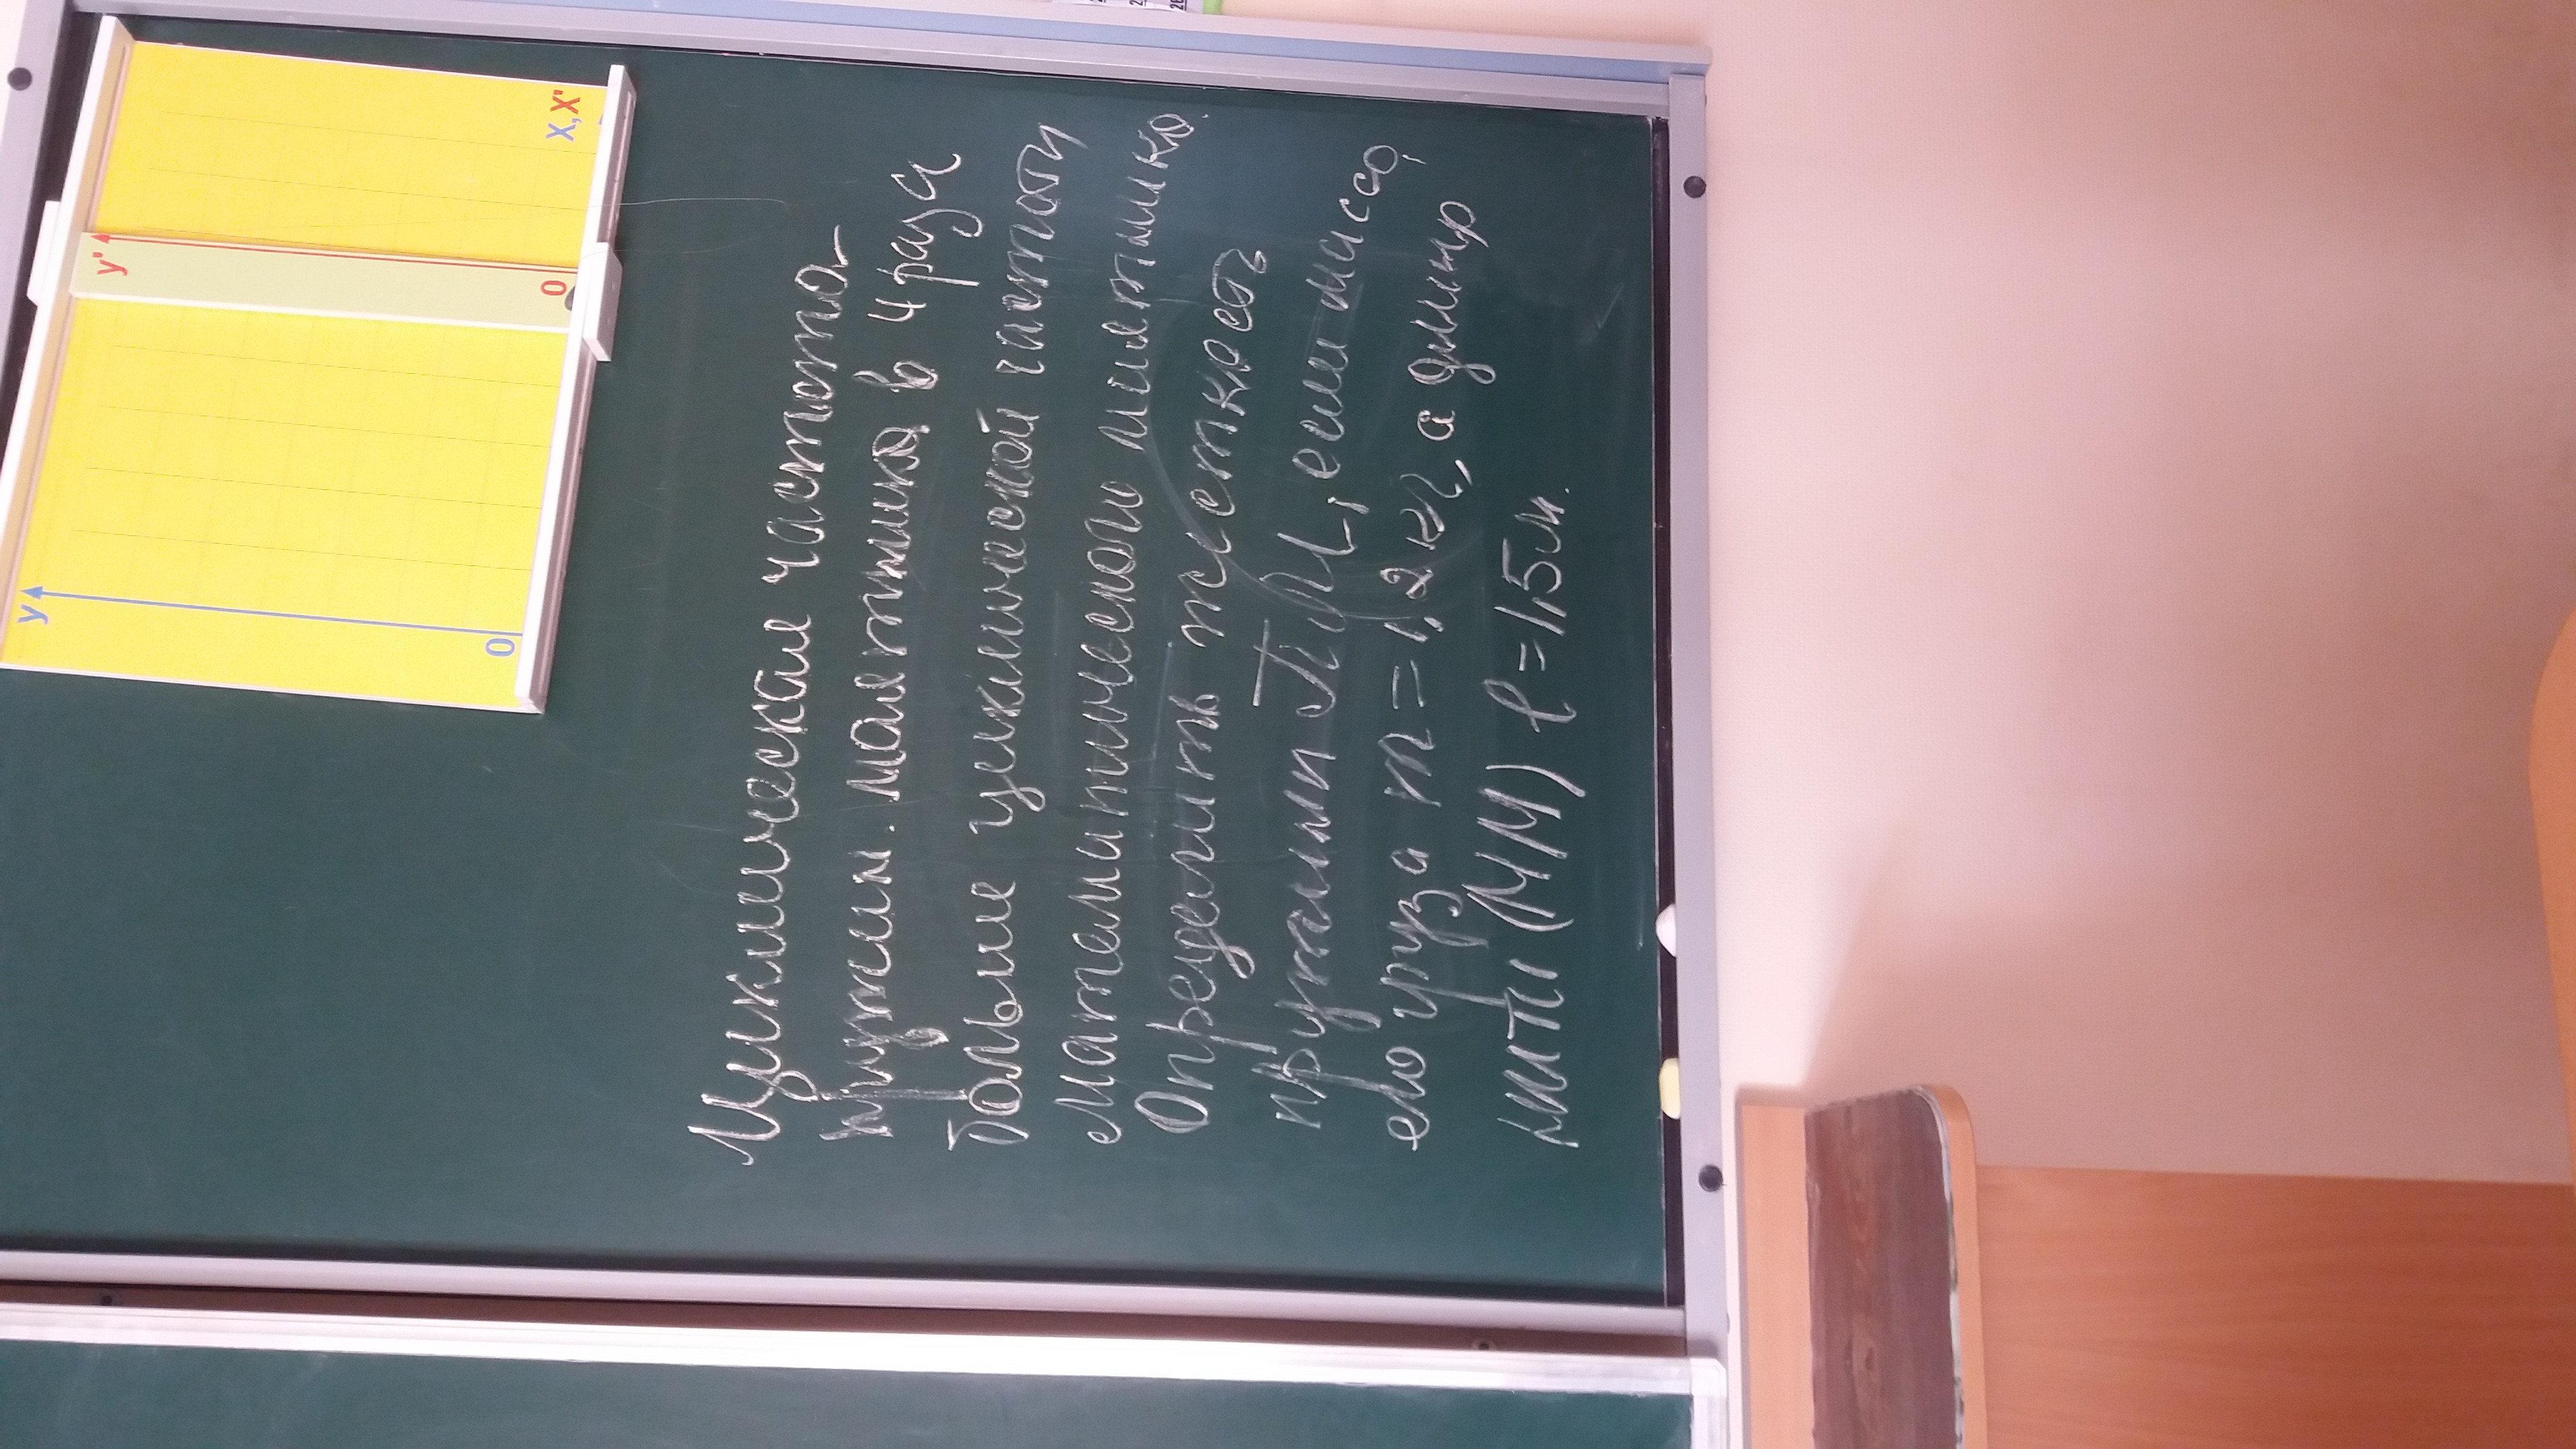 y
y'
0
0
X,X'
Циклическая частота
пружин. маятника в 4 раза
больше циклической частоты
математического маятника.
Определить жесткость
пружины ПМ, если масса
его груза m = 1,2 кг, а длина
нити (ММ) ℓ = 1,5 м.